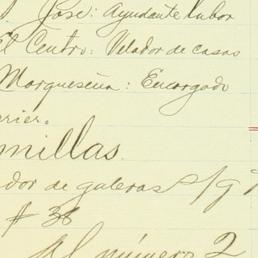 José: Ayudante labor
El Centro: Velador de casas
Marqueseña: Encargado
rrier.
millas.
dor de galeras s/g
# 36
Al número 2